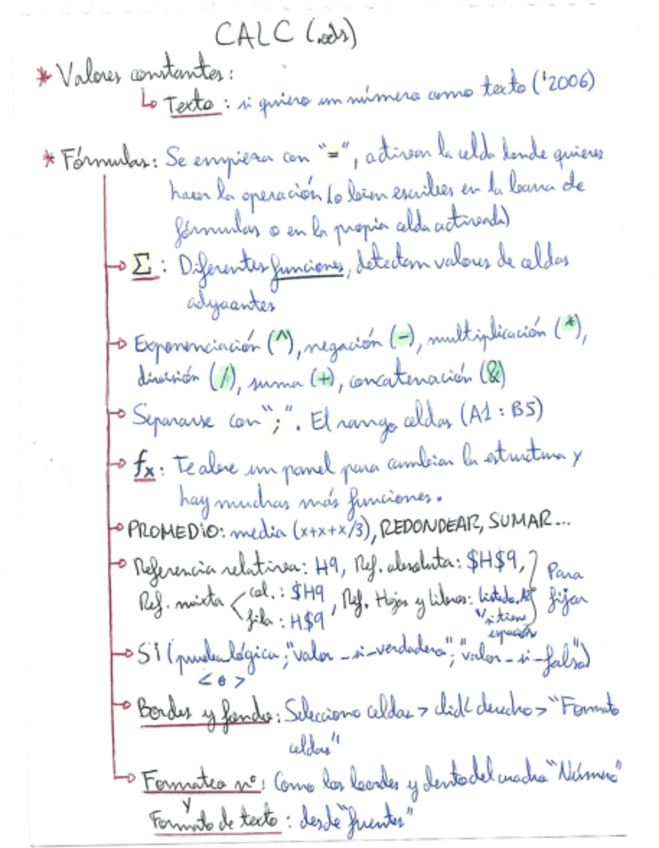 CALC (.ods)
* Valores constantes:
↳ Texto: si quiero un número como texto ('2006)
* Fórmulas: Se empieza con "=", activan la celda donde quieres
hacer la operación (o bien escribes en la barra de
fórmulas o en la propia celda activada)
→ Σ: Diferentes funciones, detectam valores de celdas
adyacentes
→ Exponenciación (^), negación (-), multiplicación (*),
división (/), suma (+), concatenación (&)
→ Separarse con ";". El rango celdas (A1:B5)
→ fx: Te abre un panel para cambiar la estructura y
hay muchas más funciones.
→ PROMEDIO: media (x+x+x/3), REDONDEAR, SUMAR...
→ Referencia relativa: H9, Ref. absoluta: $H$9, Para
Ref. mixta < col.: $H9 , Ref. Hojas y Libros: listado. fijar
fila: H$9 si tiene
espacios
→ SI (prueba lógica; "valor_si_verdadera"; "valor_si_falsa")
< o >
→ Bordes y fondo: Selecciono celdas > click derecho > "Formato
celdas"
→ Formateo nº: Como los bordes y dentro del cuadro "Número"
y
Formato de texto: desde "fuentes"